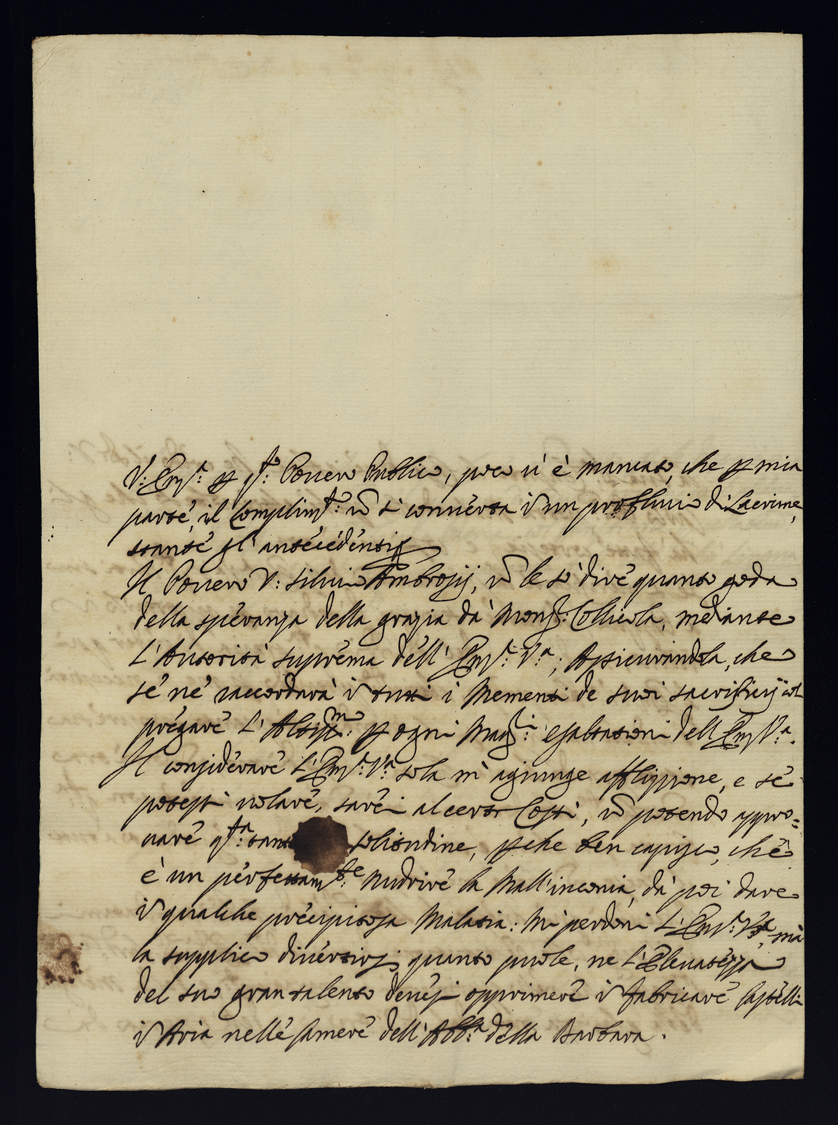 V: Em.ª p q.to Povero Publico, poco vi è mancato, che p mia
parte, il Complim.to nõ si converta ĩ un profluvio di Lacrime,
stante gl'antecedenti
Il Povero V: Silvio Ambrosij, nõ le sò dire quanto goda
della speranza della grazia da Mons.r Collicola, mediante
L'Autorità suprema dell'Em.ª V.ª, Assicurandola, che
se ne raccorderà ĩ tutti i Mementi de suoi sacrificij
pregare L'Altiss.mo p ogni Magg.r esaltazioni dell'Em.ª V.ª.
Il considerare L'Em.ª V.ª sola m'agiunge afflizione, e se
potessi volare, sarei al certo Costì, nõ potendo appro=
vare q.ta solitudine, pche ben capisco, che
è un perfettam.te Nudrire la Mall'inconia, da poi dare
ĩ qualche precipitosa Malatia: Mi perdoni L'Em.ª V.ª, mà
la supplico divertirsi quanto puole, ne L'Elevatezza
del suo gran talento devesi opprimere ĩ fabricare Castelli
ĩ Aria nelle Camere dell'Abb.ª della Barbara.